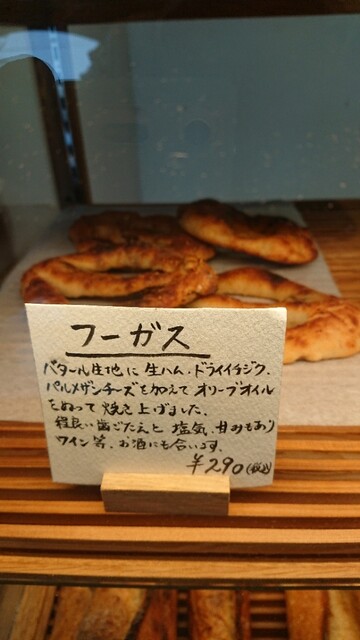 フーガス
バタール生地に 生ハム・ドライイチジク、
パルメザンチーズを加えて オリーブオイル
をぬって 焼き上げました。
程良い歯ごたえと 塩気、甘みもあり
ワイン等、お酒にも合います。
¥290(税込)